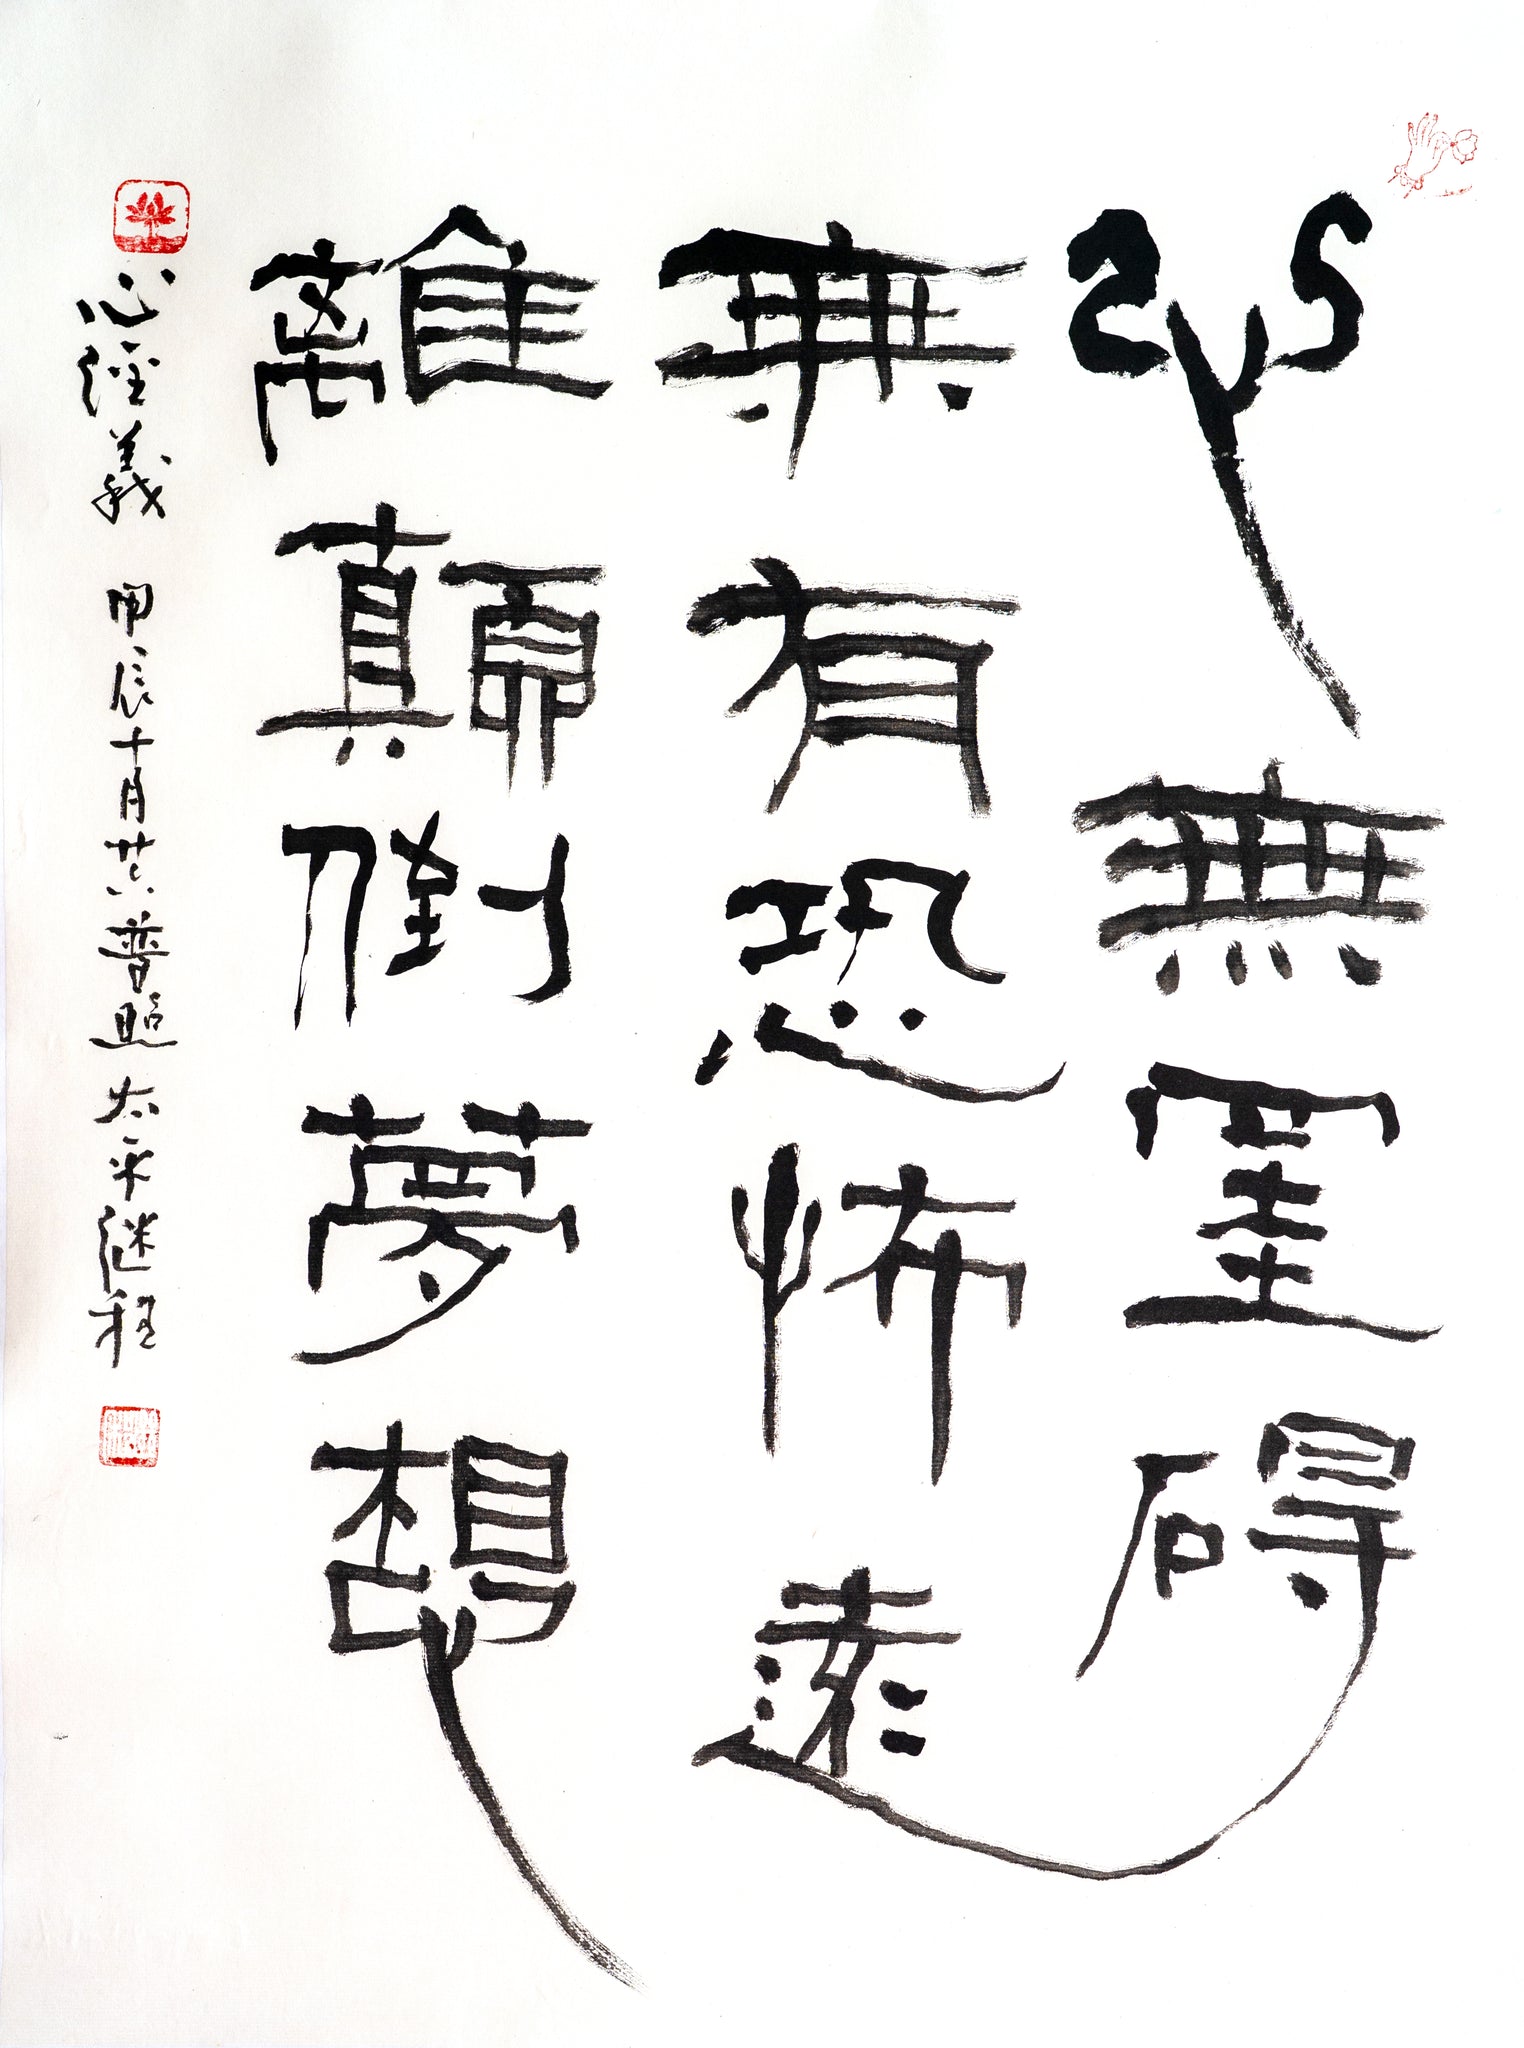 心無罣碍
無有恐怖遠
離顛倒夢想
心經義 甲辰十月廿六普照 太平继程